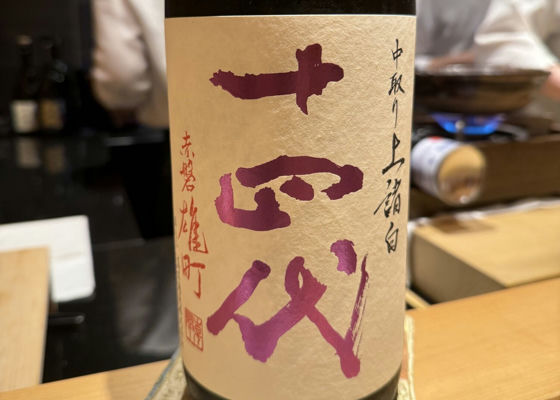 中取り上諸白
十四代
赤磐雄町